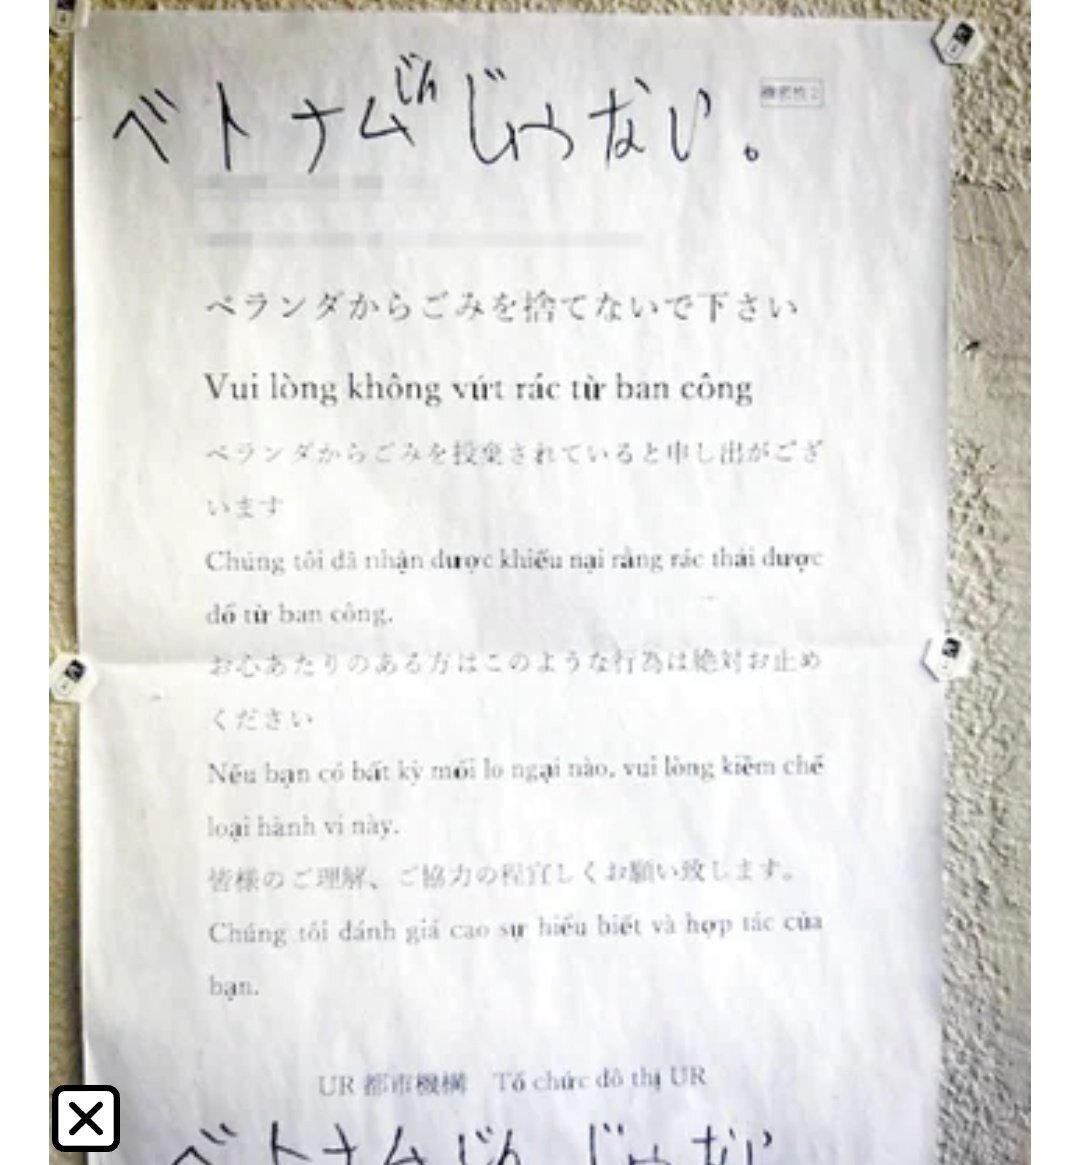 ベトナムじんじゃない。
機密性2
ベランダからごみを捨てないで下さい
Vui lòng không vứt rác từ ban công
ベランダからごみを投棄されていると申し出がござ
います
Chúng tôi đã nhận được khiếu nại rằng rác thải được
đổ từ ban công.
お心あたりのある方はこのような行為は絶対お止め
ください
Nếu bạn có bất kỳ mối lo ngại nào, vui lòng kiềm chế
loại hành vi này.
皆様のご理解、ご協力の程宜しくお願い致します。
Chúng tôi đánh giá cao sự hiểu biết và hợp tác của
bạn.
UR 都市機構 Tổ chức đô thị UR
ベトナムじんじゃない